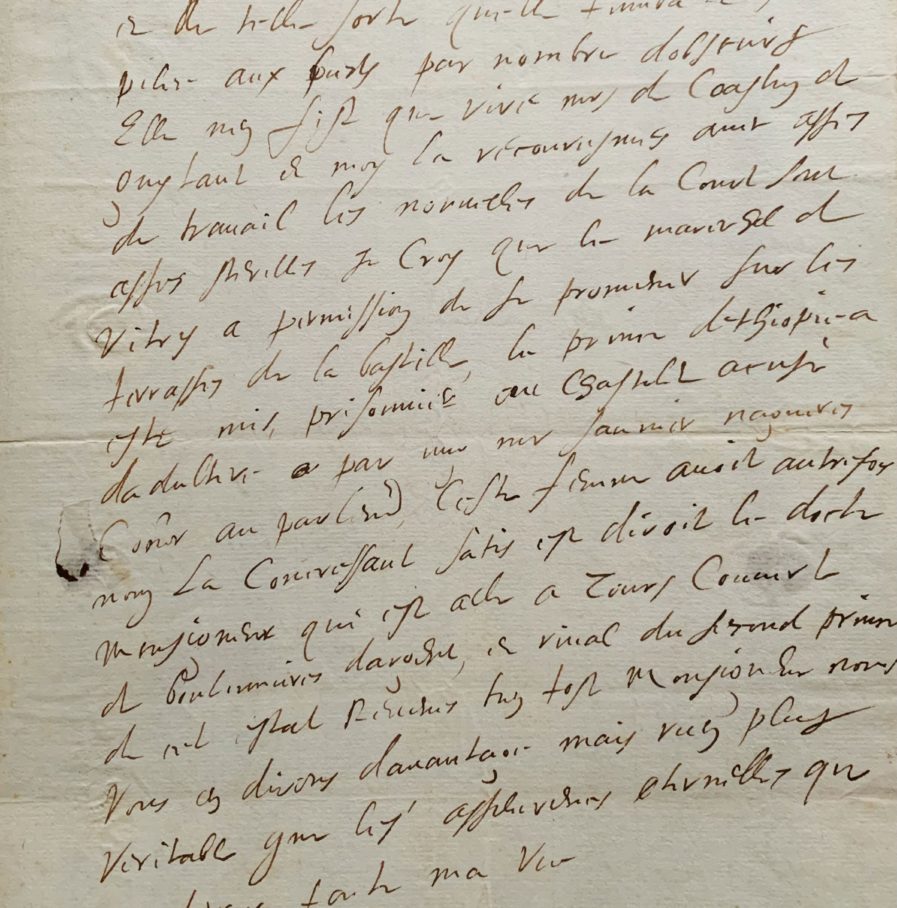 et de telle sorte quelle
pelie aux pieds par nombre dobscurs
Elle men fist que vive mrs de Coaslin de
et moy la recouvrismes avec asses
de travail les nouvelles de la Court sont
asses steriles Je Croy que le mareschal de
Vitry a permission de se promener sur les
terrasses de la bastille, le prince dethiopie a
este mis prisonnier au Chastelet acusé
dadultere par un mr saunier nagueres
Conser au parlemt, Ceste femme avoit autrefois
nom La Concressaut satis est diroit le docte
Monsigneur qui est allé a Tours Couvert
de boutonnieres dargent, et rival du segond prince
de cet estat Revenes tres tost Monsigneur nous
Vous en dirons davantage mais rien plus
Veritable que les asseurences eternelles que
toute ma Vie